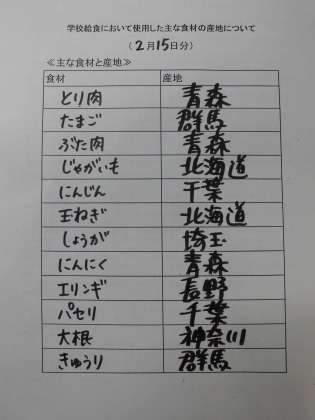 学校給食において使用した主な食材の産地について
(2月15日分)
≪主な食材と産地≫
食材 産地
とり肉 青森
たまご 群馬
ぶた肉 青森
じゃがいも 北海道
にんじん 千葉
玉ねぎ 北海道
しょうが 埼玉
にんにく 青森
エリンギ 長野
パセリ 千葉
大根 神奈川
きゅうり 群馬